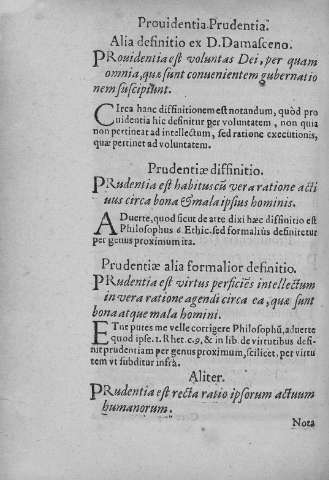 Prouidentia. Prudentia.
Alia definitio ex D. Damasceno.
PRouidentia est voluntas Dei, per quam
omnia, quæ sunt conuenientem gubernatio
nem suscipiunt.
CIrca hanc diffinitionem est notandum, quòd pro
uidentia hic definitur per voluntatem, non quia
non pertineat ad intellectum, sed ratione executionis,
quæ pertinet ad voluntatem.
Prudentiæ diffinitio.
PRudentia est habitus cũ vera ratione acti
uus circa bona & mala ipsius hominis.
ADuerte, quod sicut de arte dixi hæc diffinitio est
Philosophus 6 Ethic. sed formaliùs definiretur
per genus proximum ita.
Prudentiæ alia formalior definitio.
PRudentia est virtus perficiẽs intellectum
in vera ratione agendi circa ea, quæ sunt
bona atque mala homini.
ET ne putes me velle corrigere Philosophũ, aduerte
quod ipse. 1. Rhet. c. 9, & in lib. de virtutibus defi-
nit prudentiam per genus proximum, scilicet, per virtu
tem vt subditur infrà.
Aliter.
PRudentia est recta ratio ipsorum actuum
humanorum.
Nota